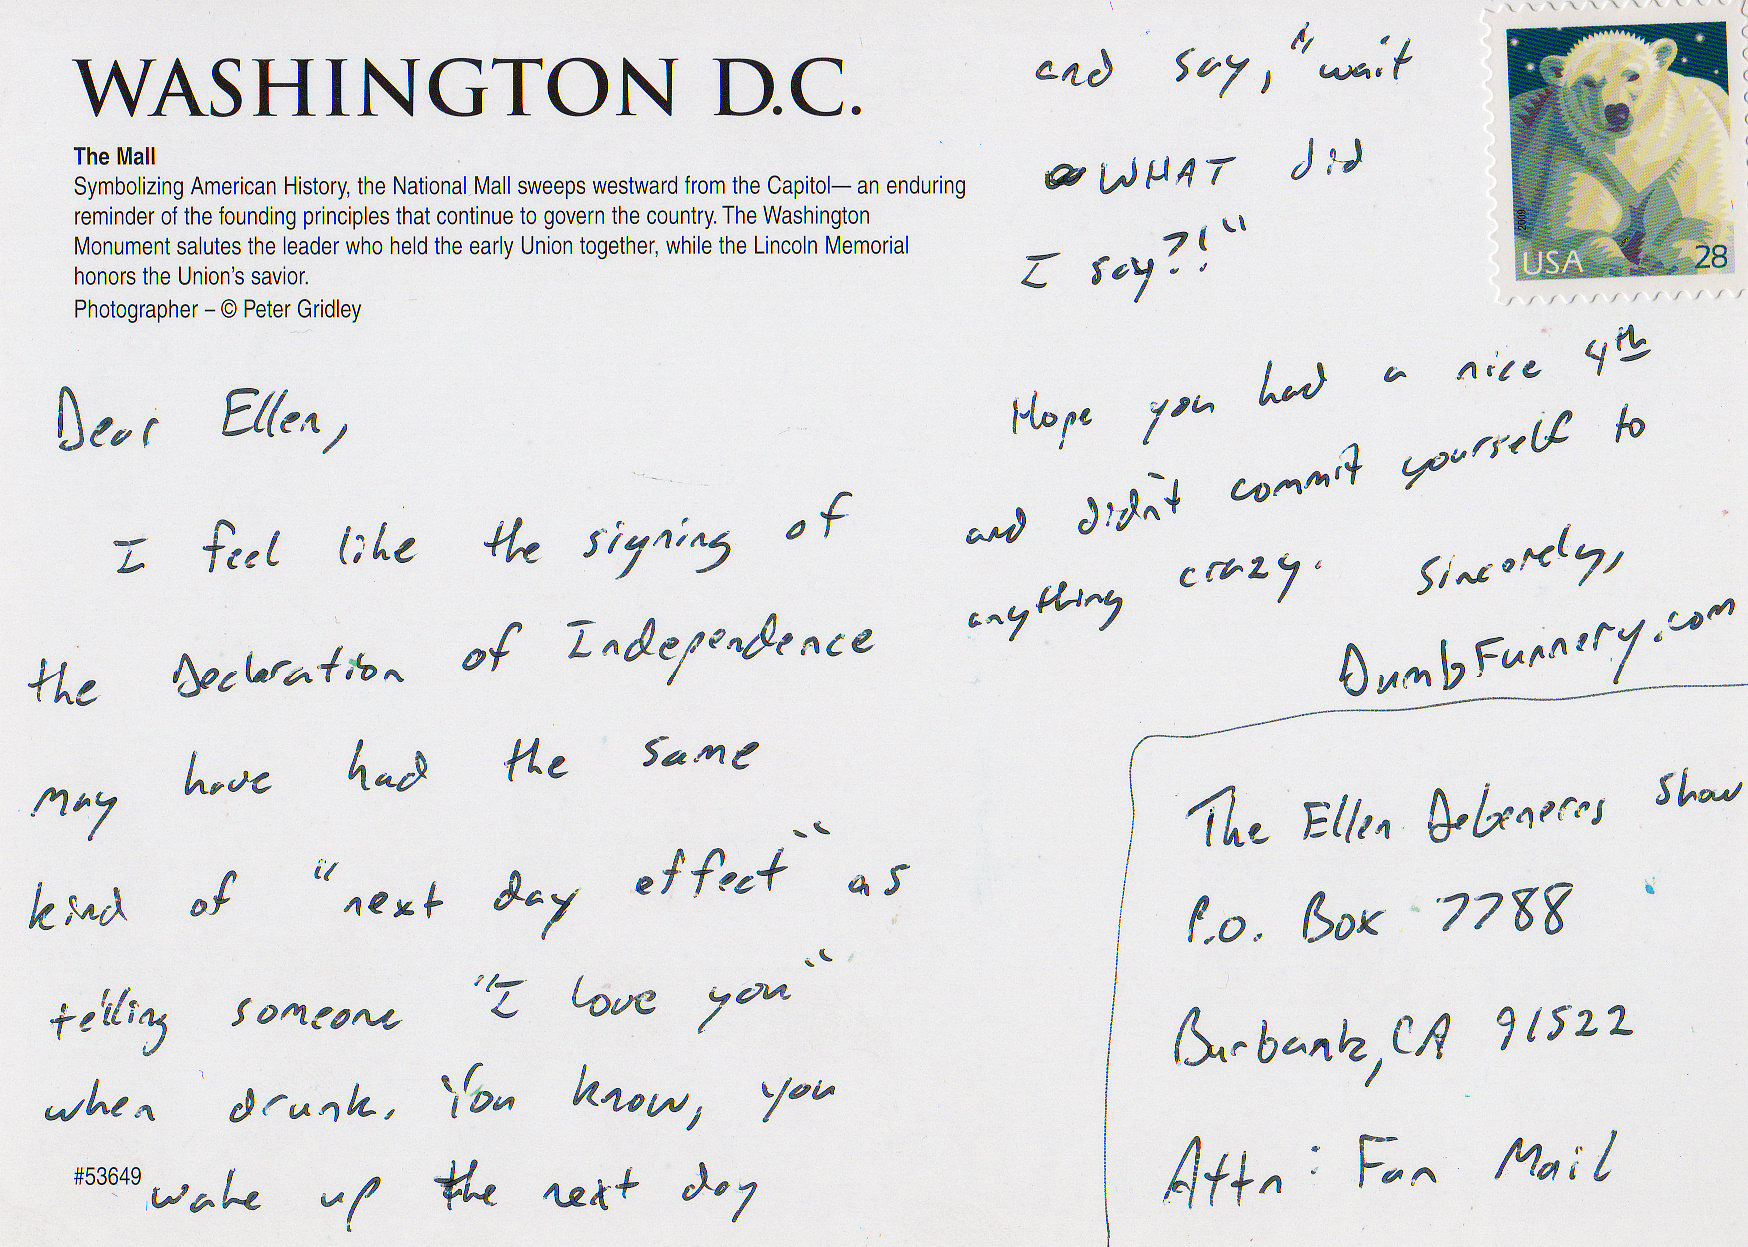 WASHINGTON D.C.
The Mall
Symbolizing American History, the National Mall sweeps westward from the Capitol— an enduring
reminder of the founding principles that continue to govern the country. The Washington
Monument salutes the leader who held the early Union together, while the Lincoln Memorial
honors the Union's savior.
Photographer – © Peter Gridley
Dear Ellen,
I feel like the signing of
the Declaration of Independence
may have had the same
kind of "next day effect" as
telling someone "I love you"
when drunk. You know, you
#53649
wake up the next day
and say, "wait
WHAT did
I say?!"
Hope you had a nice 4th
and didn't commit yourself to
anything crazy. Sincerely,
DumbFunnery.com
2009
USA 28
The Ellen Degeneres Show
P.O. Box 7788
Burbank, CA 91522
Attn: Fan Mail